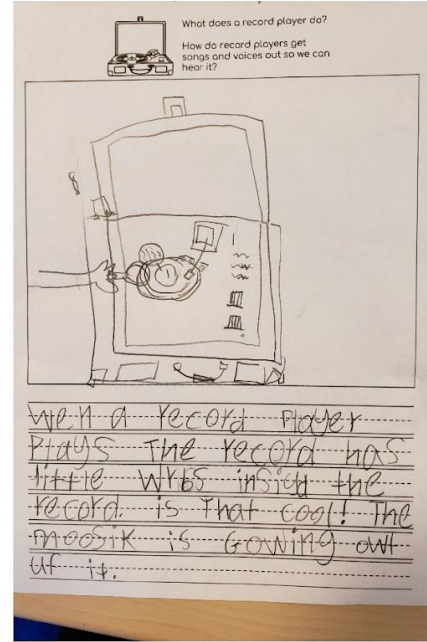 What does a record player do?
How do record players get
songs and voices out so we can
hear it?
wen a record Player
Plays The record has
little wrbs insigd the
record. is That cool! The
moosik is Gowing owt
uf it.